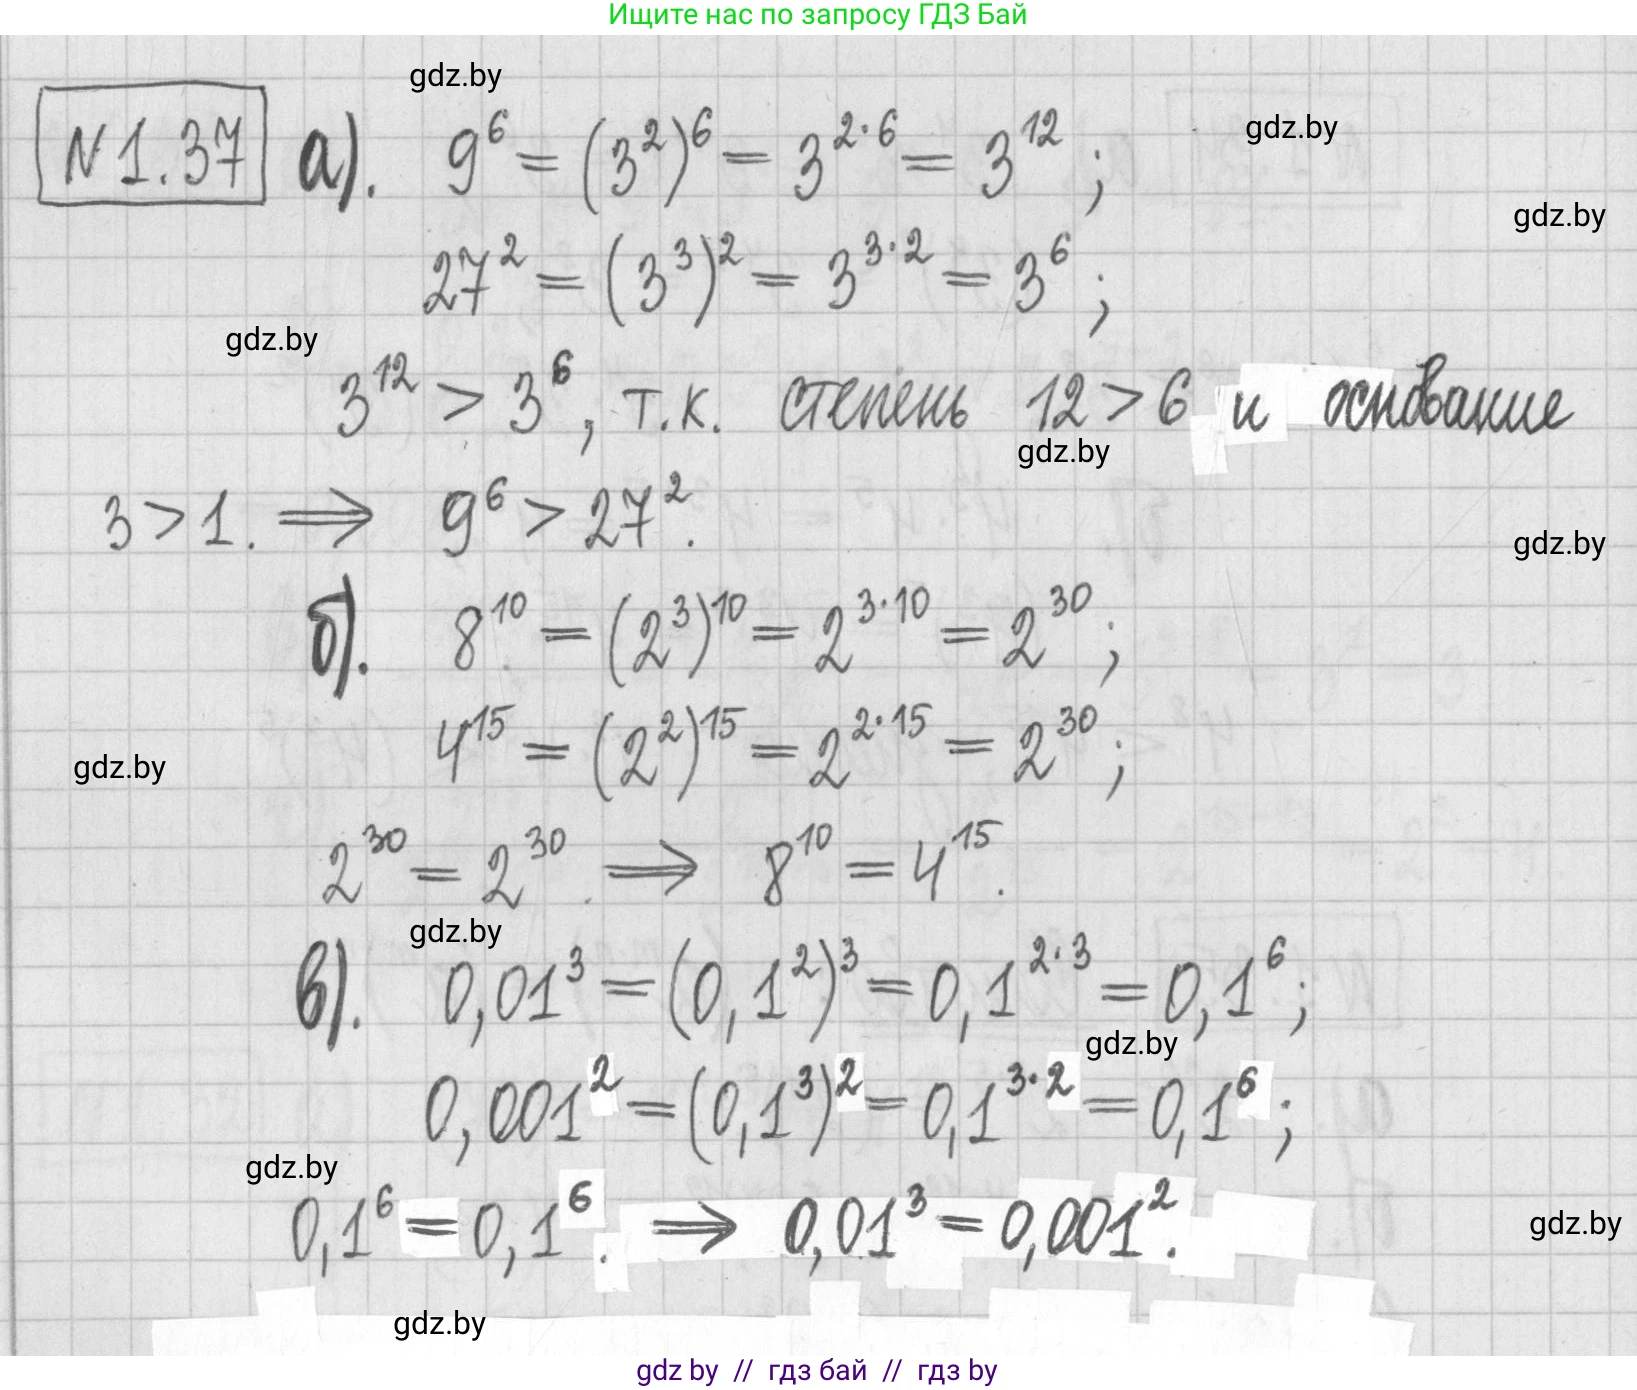 Ищите нас по запросу ГДЗ Бай
gdz.by
N 1.37 а). 9^6 = (3^2)^6 = 3^{2·6} = 3^{12} ;
gdz.by
gdz.by
27^2 = (3^3)^2 = 3^{3·2} = 3^6 ;
gdz.by
3^{12} > 3^6, т.к. степень 12 > 6 и основание
gdz.by
3 > 1. ⟹ 9^6 > 27^2.
gdz.by
б). 8^{10} = (2^3)^{10} = 2^{3·10} = 2^{30} ;
4^{15} = (2^2)^{15} = 2^{2·15} = 2^{30} ;
gdz.by
2^{30} = 2^{30}. ⟹ 8^{10} = 4^{15}.
gdz.by
в). 0,01^3 = (0,1^2)^3 = 0,1^{2·3} = 0,1^6 ;
gdz.by
0,001^2 = (0,1^3)^2 = 0,1^{3·2} = 0,1^6 ;
gdz.by
0,1^6 = 0,1^6. ⟹ 0,01^3 = 0,001^2.
gdz.by
gdz.by
gdz by // гдз бай // гдз by